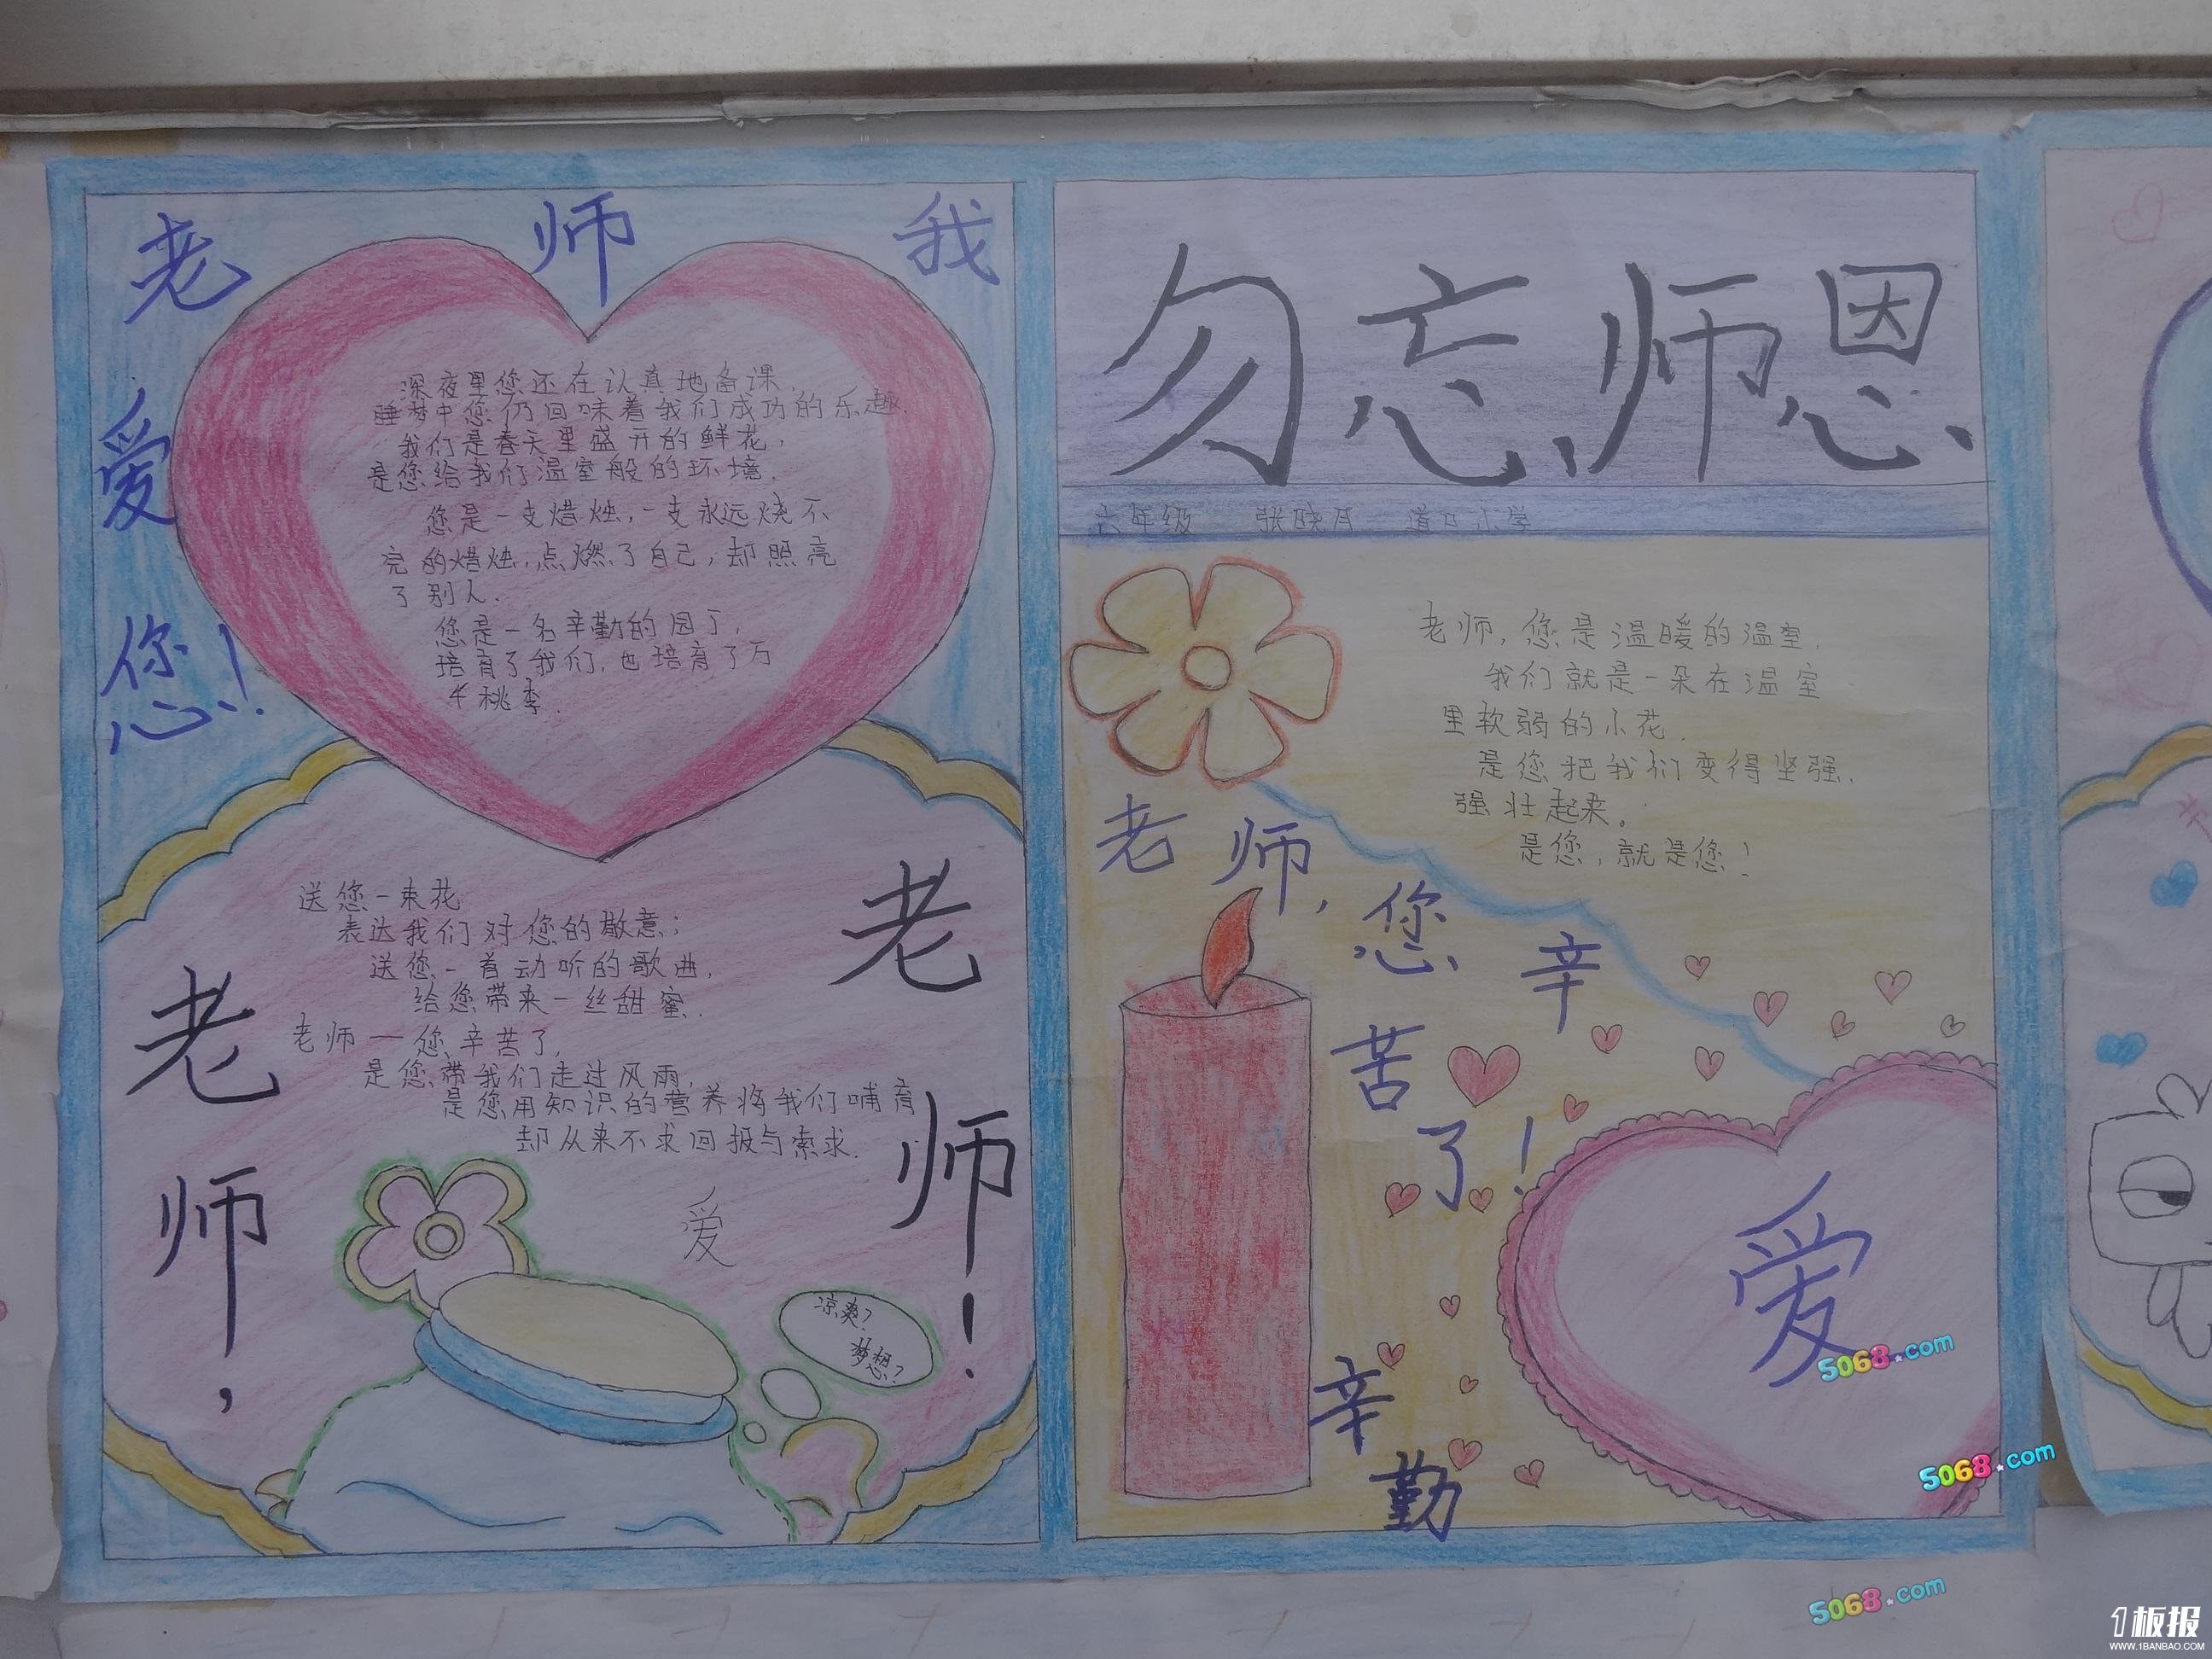 老师我爱您!
深夜里您还在认真地备课,
睡梦中您仍回味着我们成功的乐趣.
我们是春天里盛开的鲜花,
是您给我们温室般的环境.
您是一支蜡烛,一支永远烧不
完的蜡烛,点燃了自己,却照亮
了别人.
您是一名辛勤的园丁,
培育了我们,也培育了万
千桃李.
送您一束花
表达我们对您的敬意;
送您一首动听的歌曲,
给您带来一丝甜蜜.
老师一您辛苦了,
是您带我们走过风雨,
是您用知识的营养将我们哺育
却从来不求回报与索求.
老师,
老师!
爱
凉爽?
梦想?
勿忘师恩
六年级 张晓月 道口小学
老师,您是温暖的温室,
我们就是一朵在温室
里软弱的小花.
是您把我们变得坚强,
强壮起来。
是您,就是您!
老师,您辛苦了!
爱
辛勤
5068.com
5068.com
5068.com
1板报
WWW.1BANBAO.COM